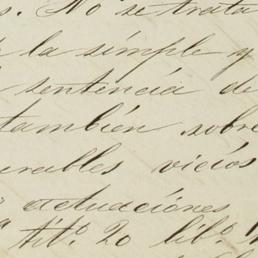 s. No se trata
la simple y
sentencia de
también sobre
rables vicios
actuaciones
Tit.º 20 lib.º